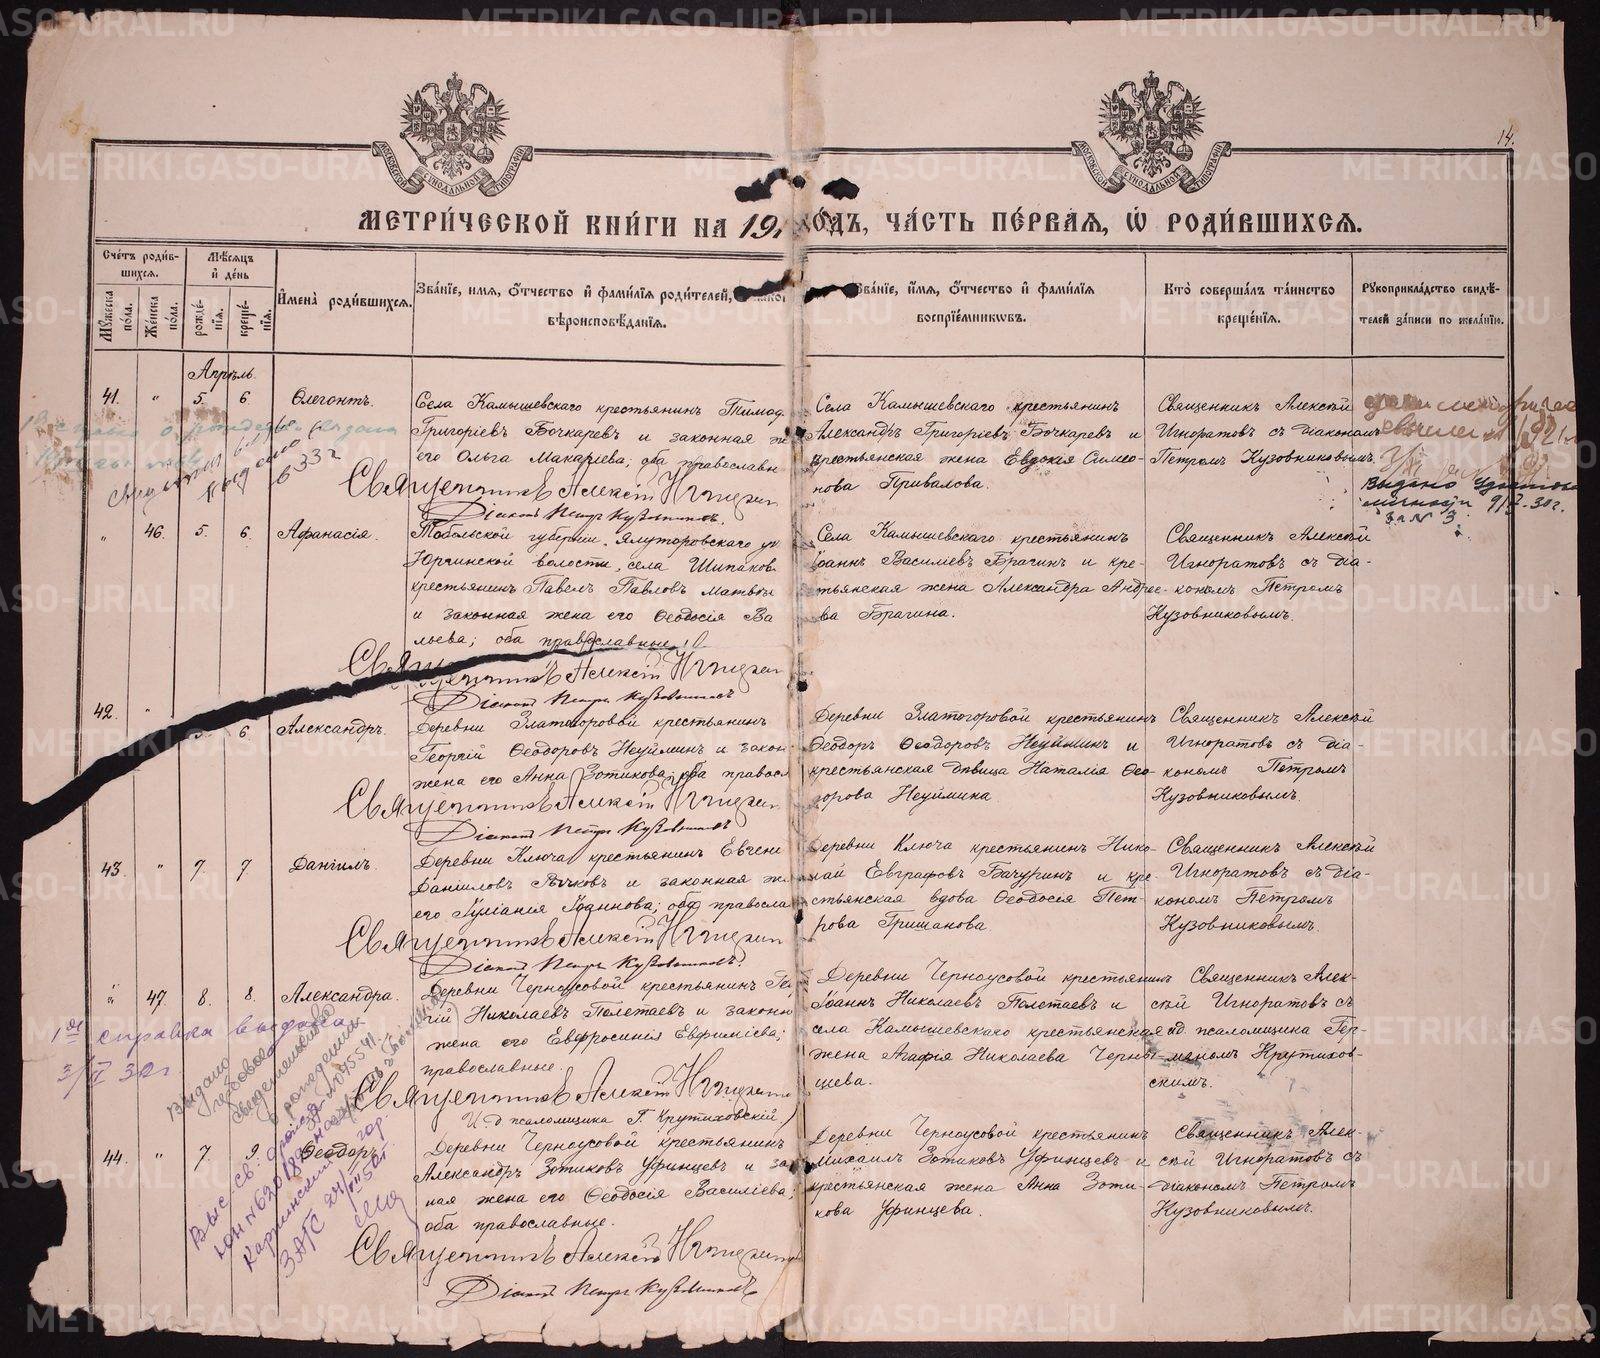 14.
МОСКОВСКОЙ СѴНОДАЛЬНОЙ ТИПОГРАФІИ
МОСКОВСКОЙ СѴНОДАЛЬНОЙ ТИПОГРАФІИ
МЕТРИ́ЧЕСКОЙ КНИ́ГИ НА 19 ГО́ДЪ, ЧА́СТЬ ПЕ́РВАЯ, Ѡ РОДИ́ВШИХСЯ.
Счетъ роди́в-
шихся.
Мꙋжеска по́ла.
Женска по́ла.
Мѣсяцъ
и де́нь
рожде́-
нїя.
креще́-
нїя.
Имена̀ роди́вшихся.
Зва́нїе, имя, о́тчество и фами́лїя роди́телей,
вѣроисповѣ́данїя.
Зва́нїе, и́мя, о́тчество и фами́лїя
воспрїе́мниковъ.
Кто̀ соверша́лъ та́инство
креще́нїя.
Рꙋкоприкла́дство свидѣ́-
телей за́писи по жела́нїю.
Апрѣль.
41. " 5. 6. Олегонтъ.
Села Камышевскаго крестьянинъ Тимоѳ.
Григоріевъ Бочкаревъ и законная
его Ольга Макаріева; оба православн
Священникъ Алексій Игноратовъ
Діаконъ Петръ Кузовниковъ.
Села Камышевскаго крестьянинъ
Александръ Григоріевъ Бочкаревъ и
крестьянская жена Евдокія Симео-
нова Привалова.
Священникъ Алексѣй
Игноратовъ съ діакономъ
Петромъ Кузовниковымъ.
1921
Выдано
9/I-30г.
за N 3.
" 46. 5. 6. Аѳанасія.
Тобольской губерніи, Ялуторовскаго у
Юргинской волости, села Шипаков
крестьянинъ Павелъ Павловъ Матвѣ
и законная жена его Ѳеодосія Ва
льева; оба православные.
Священникъ Алексій Игноратовъ
Діаконъ Петръ Кузовниковъ
Села Камышевскаго крестьянинъ
Іоаннъ Василіевъ Брагинъ и кре-
стьянская жена Александра Андрее-
ва Брагина.
Священникъ Алексѣй
Игноратовъ съ діа-
кономъ Петромъ
Кузовниковымъ.
42. " 5. 6. Александръ.
Деревни Златогоровой крестьянинъ
Георгій Ѳеодоровъ Неуйминъ и закон
жена его Анна Зотикова; оба правосл
Священникъ Алексій Игноратовъ
Діаконъ Петръ Кузовниковъ
Деревни Златогоровой крестьянинъ
Ѳеодоръ Ѳеодоровъ Неуйминъ и
крестьянская дѣвица Наталія Ѳео-
дорова Неуймина
Священникъ Алексѣй
Игноратовъ съ діа-
кономъ Петромъ
Кузовниковымъ.
43. " 7. 7 Даніилъ.
Деревни Ключа крестьянинъ Евгені
Даніиловъ Лычковъ и законная ж
его Іуліанія Іоаннова; оба правосла
Священникъ Алексій Игноратовъ
Діаконъ Петръ Кузовниковъ.
Деревни Ключа крестьянинъ Нико-
лай Евграфовъ Бачуринъ и кре-
стьянская вдова Ѳеодосія Пет-
рова Гришанова.
Священникъ Алексѣй
Игноратовъ съ діа-
кономъ Петромъ
Кузовниковымъ.
" 47. 8. 8. Александра.
Деревни Черноусовой крестьянинъ Ге
гій Николаевъ Полетаевъ и законн
жена его Евфросинія Евфиміева;
православные.
Священникъ Алексій Игноратовъ
И. д псаломщика Г. Крутиховскій.
Деревни Черноусовой крестьянинъ
Іоаннъ Николаевъ Полетаевъ и
села Камышевскаго крестьянская
жена Агафія Николаева Черны-
шева.
Священникъ Алек-
сѣй Игноратовъ съ
ид псаломщика Гер-
маномъ Крутихов-
скимъ.
1ая справка выдана
3/II 32г
Выдано
свидетельство
о рождении
44. " 7. 9. Ѳеодоръ.
Деревни Черноусовой крестьянинъ
Александръ Зотиковъ Уфинцевъ и за
ная жена его Ѳеодосія Василіева;
оба православные.
Священникъ Алексій Игноратовъ
Діаконъ Петръ Кузовниковъ
Деревни Черноусовой крестьянинъ
Михаилъ Зотиковъ Уфинцевъ и
крестьянская жена Анна Зоти-
кова Уфинцева.
Священникъ Алек-
сѣй Игноратовъ съ
діакономъ Петромъ
Кузовниковымъ.
METRIKI.GASO-URAL.RU